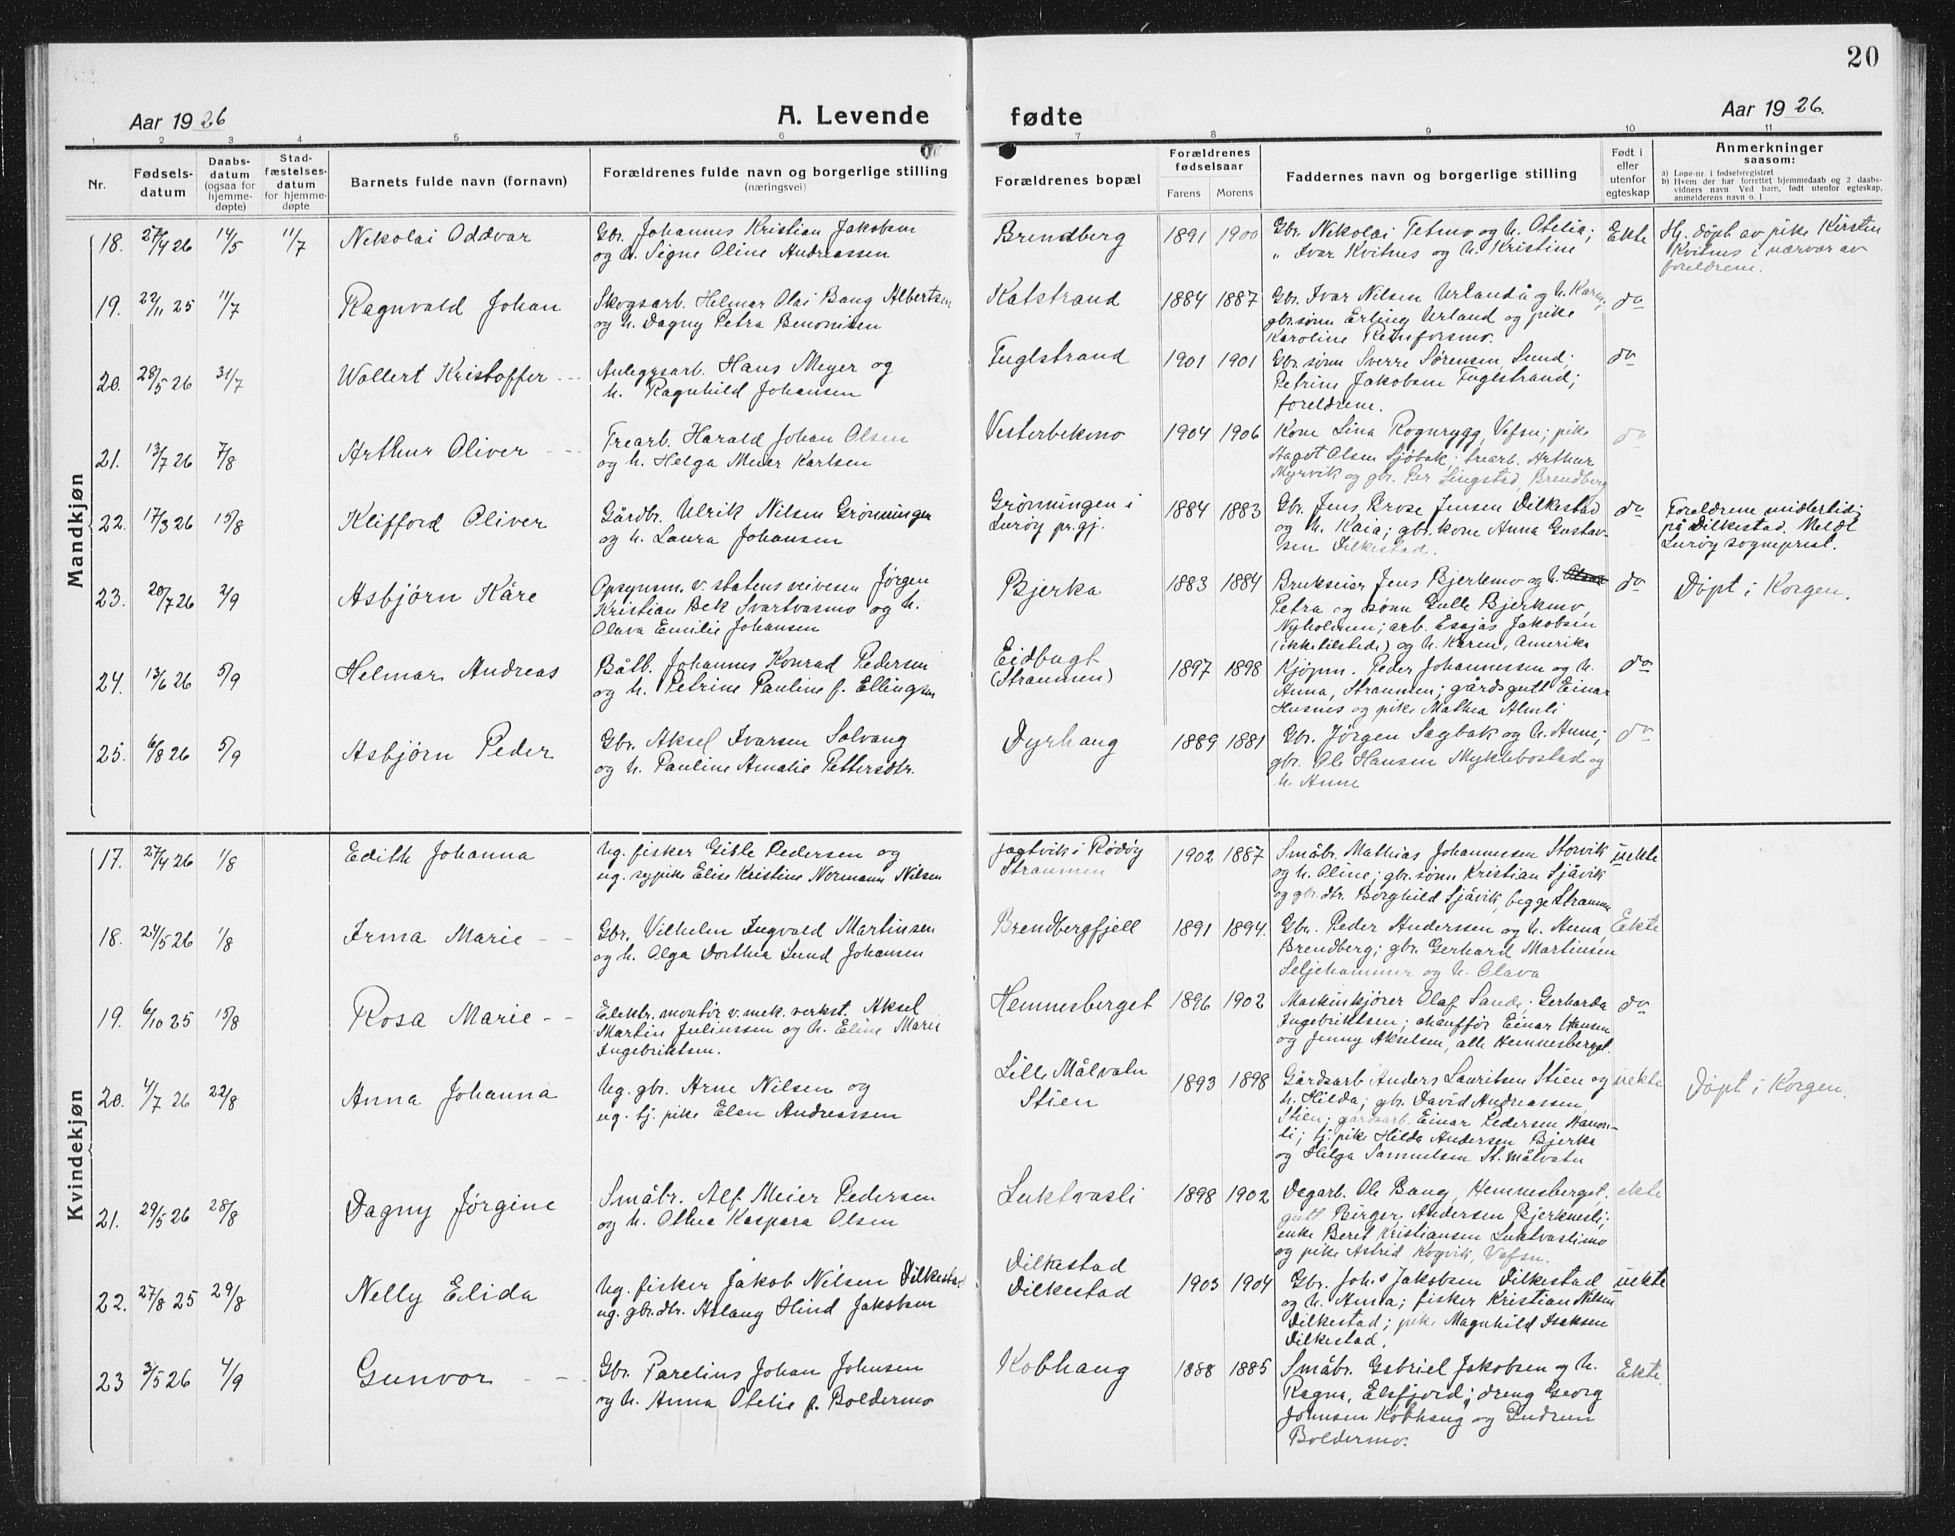 20
Aar 1926
A. Levende fødte
Aar 1926.
1 2 3 4 5 6 7 8 9 10 11
Nr.
Fødsels-datum
Daabs-datum (ogsaa for hjemme-døpte)
Stad-fæstelses-datum for hjemme-døpte
Barnets fulde navn (fornavn)
Forældrenes fulde navn og borgerlige stilling (næringsvei)
Forældrenes bopæl
Forældrenes fødselsaar
Farens Morens
Faddernes navn og borgerlige stilling
Født i eller utenfor egteskap
Anmerkninger saasom:
a) Løpe-nr. i fødselsregistret
b) Hvem der har forrettet hjemmedaab og 2 daabs-vidners navn Ved barn, født utenfor egteskap, anmelderens navn o. l
Mandkjøn
18. 27/4 26 14/5 11/7 Nikolai Oddvar
Gbr. Johannes Kristian Jakobsen
og h. Signe Oline Andreassen
Brendberg 1891 1900
Gbr. Nikolai Tetmo og h. Otelia;
" Ivar Kvitnes og h. Kristine
Ekte
Hj. døpt av pike Kirsten
Kvitnes i nærvær av
foreldrene.
19. 22/11 25 11/7 Ragnvald Johan
Skogsarb. Helmar Olai Bang Albertsen
og h. Dagny Petra Benonisen
Katstrand 1884 1887
Gbr. Ivar Nilsen Urlandå og h. Karen,
gbr.sønn Erling Urland og pike
Karoline Reinforsmo.
do
20. 28/5 26 31/7 Wollert Kristoffer
Anleggsarb. Hans Meyer og
h. Ragnhild Johansen
Fuglstrand 1901 1901
Gbr. sønn Sverre Sørensen, Sund;
Petrine Jakobsen Fuglstrand;
foreldrene.
do
21. 13/7 26 7/8 Arthur Oliver
Trearb. Harald Johan Olsen
og h. Helga Meier Karlsen
Vesterbekmo 1904 1906
Kone Lina Rognrygg, Vefsn; pike
Aagot Olsen Sjøbak; trearb. Arthur
Myrvik og gbr. Per Lingstad, Brendberg
do
22. 17/3 26 15/8 Klifford Oliver
Gårdbr. Ulrik Nilsen Grønningen
og h. Laura Johansen
Grønningen i
Lurøy pr.gj. 1884 1883
Gbr. Jens Prose Jensen Dilkestad
og h. Kaia; gbr. kone Anna Gustav-
sen Dilkestad.
do
Foreldrene midlertidig
på Dilkestad. Meldt
Lurøy sogneprest.
23. 20/7 26 2/9 Asbjørn Kåre
Opsynsm. v. statens veivesen Jørgen
Kristian Bek Svartvasmo og h.
Olava Emilie Johansen
Bjerka 1883 1884
Brukseier Jens Bjerkmo og h.
Petra og sønn Gulle Bjerkmo,
Nyholmen; arb. Esajas Jakobsen
(ikke tilstede) og h. Karen, Amerika
do
Døpt i Korgen.
24. 13/6 26 5/9 Helmar Andreas
Båtb. Johannes Konrad Pedersen
og h. Petrine Pauline f. Ellingsen
Eidbugt
(Straumen) 1897 1898
Kjøpm. Peder Johannessen og h.
Anna, Straumen; gårdsgutt Einar
Husnes og pike Mathea Almli
do
25. 6/8 26 5/9 Asbjørn Peder
Gbr. Aksel Ivarsen Solvang
og h. Pauline Amalie Pettersdtr.
Dyrhaug 1889 1881
Gbr. Jørgen Sagbak og h. Anne;
gbr. Ole Hansen Myklebostad og
h. Anne
do
Kvindekjøn
17. 27/4 26 1/8 Edith Johanna
Ug. fisker Gisle Pedersen og
ug. sypike Elise Kristine Normann Nilsen
Jagtvik i Rødøy
Straumen 1902 1887
Småbr. Mathias Johannessen Storvik
og h. Oline; gbr. sønn Kristian Sjåvik
og gbr. dtr. Borghild Sjåvik, begge Straumen
uekte
18. 24/5 26 1/8 Irma Marie
Gbr. Vilhelm Ingvald Martinsen
og h. Olga Dorthea Lund Johansen
Brendbergfjell 1891 1894.
Gbr. Peder Anderssen og h. Anna,
Brendberg; gbr. Gerhard Martinsen
Seljehammer og h. Olava
Ekte
19. 6/10 25 15/8 Rosa Marie
Elektr. montør v. mek. verkst. Aksel
Martin Juliussen og h. Eline Marie
Ingebriktsen.
Hemnesberget 1896 1902
Maskinkjører Olaf Sande; Gerharda
Ingebriktsen; chauffør Einar Hansen
og Jenny Akselsen, alle Hemnesberget.
do
20. 4/7 26 22/8 Anna Johanna
Ug. gbr. Arne Nilsen og
ug. tj. pike Elen Andreassen
Lille Målvatn
Stien 1893 1898
Gårdsarb. Anders Lauritsen Stien og
h. Hilda; gbr. David Andreassen
Stien; gårdsarb. Einar Pedersen
li; tj. pike Hilda Andersen Bjerka
og Helga Samuelsen St. Målvatn
uekte
Døpt i Korgen.
21. 29/5 26 28/8 Dagny Jørgine
Småbr. Alf Meier Pedersen
og h. Othea Kaspara Olsen
Luktvasli 1898 1902
Dagarb. Ole Bang, Hemnesberget,
gutt Birger Andersen Bjerknesli;
enke Berit Kristiansen Luktvaslimo
og pike Astrid Kogvik, Vefsn.
ekte
22. 27/8 25 29/8 Nelly Elida
Ug. fisker Jakob Nilsen Dilkestad
ug. gbr.dtr. Aslaug Hind Jakobsen
Dilkestad
Dilkestad 1903 1904
Gbr. Johs Jakobsen Dilkestad
og h. Anna; fisker Kristian Nilsen
Dilkestad; pike Magnhild Isaksen
Dilkestad.
uekte
23 3/5 26 4/9 Gunvor
Gbr. Parelius Johan Johnsen
og h. Anna Otelie f. Boldermo
Kobhaug 1888 1885
Småbr. Gabriel Jakobsen og h.
Ragna, Elsfjord; dreng Georg
Johnsen Kobhaug og Gudrun
Boldermo.
Ekte.